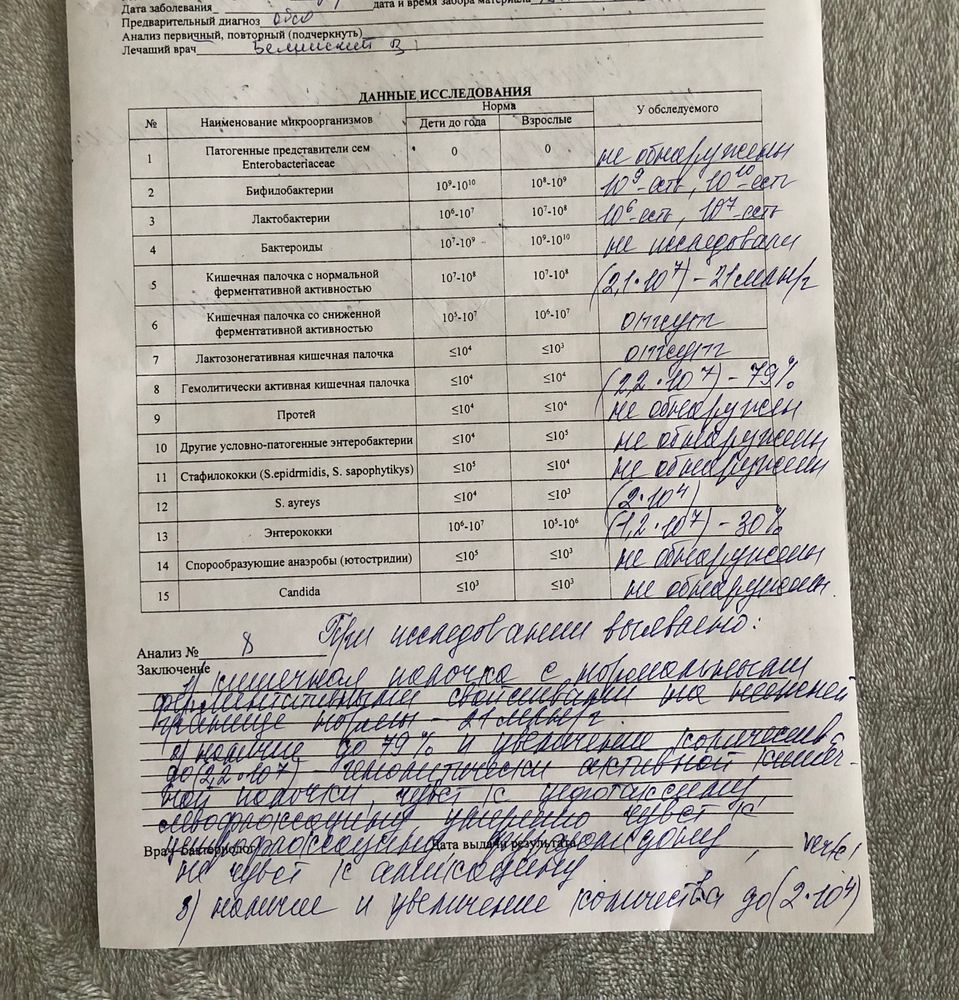 Дата заболевания дата и время забора материала
Предварительный диагноз обсл
Анализ первичный, повторный (подчеркнуть)
Лечащий врач Белинский В
ДАННЫЕ ИССЛЕДОВАНИЯ
№ Наименование микроорганизмов Норма У обследуемого
Дети до года Взрослые
1 Патогенные представители сем Enterobacteriaceae 0 0 не обнаружены
2 Бифидобактерии 10⁹-10¹⁰ 10⁸-10⁹ 10⁹-есть, 10¹⁰-есть
3 Лактобактерии 10⁶-10⁷ 10⁷-10⁸ 10⁶-есть, 10⁷-есть
4 Бактероиды 10⁷-10⁹ 10⁹-10¹⁰ не исследовали
5 Кишечная палочка с нормальной ферментативной активностью 10⁷-10⁸ 10⁷-10⁸ (2,1·10⁷) - 21 млн/г
6 Кишечная палочка со сниженной ферментативной активностью 10⁵-10⁷ 10⁶-10⁷ отсутст
7 Лактозонегативная кишечная палочка ≤10⁴ ≤10³ отсутст
8 Гемолитически активная кишечная палочка ≤10⁴ ≤10⁴ (2,2·10⁷) - 79%
9 Протей ≤10⁴ ≤10⁴ не обнаружен
10 Другие условно-патогенные энтеробактерии ≤10⁴ ≤10⁵ не обнаружены
11 Стафилококки (S.epidrmidis, S. sapophytikys) ≤10⁵ ≤10⁴ не обнаружены
12 S. ayreys ≤10⁴ ≤10³ (2·10⁴)
13 Энтерококки 10⁶-10⁷ 10⁵-10⁶ (1,2·10⁷) - 30%
14 Спорообразующие анаэробы (ютостридии) ≤10⁵ ≤10³ не обнаружены
15 Candida ≤10³ ≤10³ не обнаружен.
Анализ № 8 При исследовании выявлено:
Заключение 1) кишечная палочка с нормальными
ферментативными свойствами на нижней
границе нормы - 21 млн/г.
2) наличие до 79% и увеличение количества
до (2,2·10⁷) гемолитически активной кишеч-
ной палочки, чувст к цефотаксиму
левофлоксацину умеренно чувст к
Врач бактериолог Дата выдачи результата , verte!
не чувст к амикацину
3) наличие и увеличение количества до (2·10⁴)